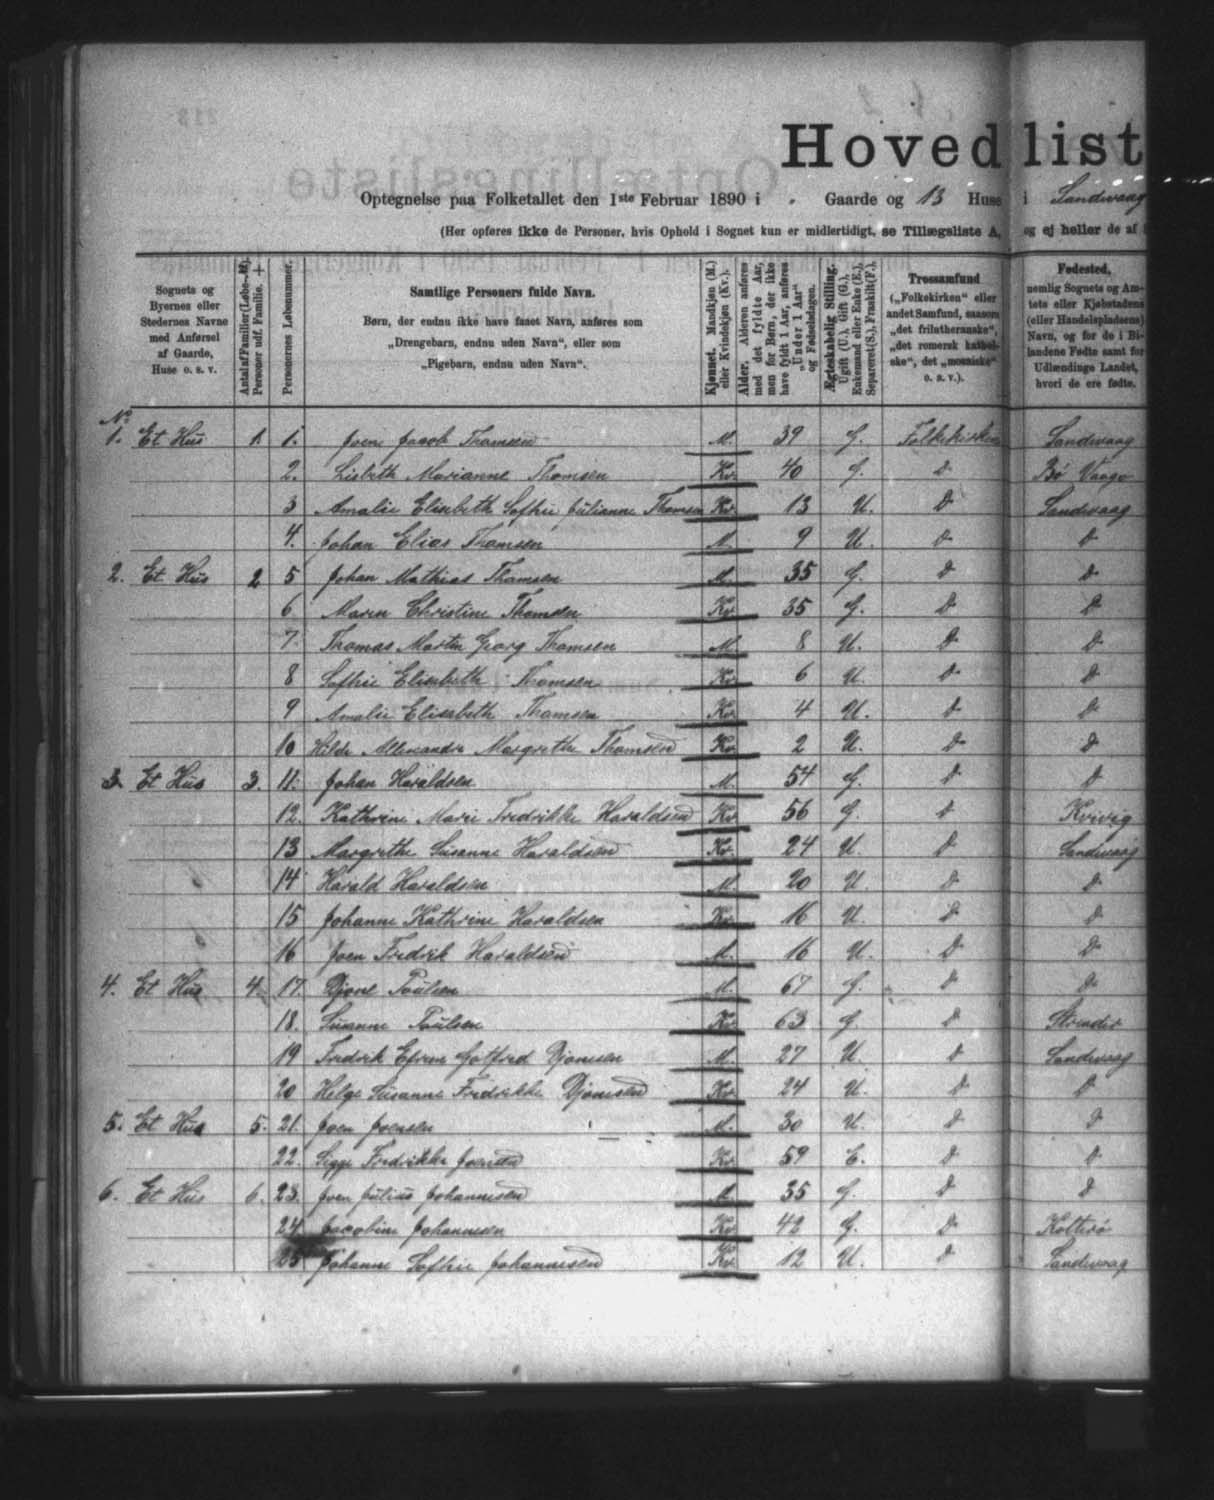 Hovedlist
Optegnelse paa Folketallet den 1ste Februar 1890 i . Gaarde og 13 Huse i Sandevaag
(Her opføres ikke de Personer, hvis Ophold i Sognet kun er midlertidigt, se Tillægsliste A, og ej heller de af
Sognets og Byernes eller Stedernes Navne med Anførsel af Gaarde, Huse o. s. v.
Antal af Familier (Løbe-№). Personer udf. Familie. +
Personernes Løbenummer.
Samtlige Personers fulde Navn.
Børn, der endnu ikke have faaet Navn, anføres som
„Drengebarn, endnu uden Navn“, eller som
„Pigebarn, endnu uden Navn“.
Kjønnet. Mandkjøn (M.) eller Kvindekjøn (Kv.).
Alder. Alderen anføres med det fyldte Aar, men for Børn, der ikke have fyldt 1 Aar, anføres „Under 1 Aar“ og Fødselsdagen.
Ægteskabelig Stilling. Ugift (U.), Gift (G.), Enkemand eller Enke (E.), Separeret (S.), Fraskilt (F.).
Trossamfund („Folkekirken“ eller andet Samfund, saasom „det frilutheranske“, „det romersk katholske“, det „mosaiske“ o. s. v.).
Fødested, nemlig Sognets og Amtets eller Kjøbstadens (eller Handelspladsens) Navn, og for de i Bilandene Fødte samt for Udlændinge Landet, hvori de ere fødte.
№
1. Et Hus 1. 1. Joen Jacob Thomsen M. 39 G. Folkekirken Sandevaag
2. Lisbeth Marianne Thomsen Kv. 40 G. D Bø Vaagø
3 Amalie Elisabeth Sofhie Julianne Thomsen Kv. 13 U. D Sandevaag
4. Johan Elias Thomsen M. 9 U. D D
2. Et Hus 2 5 Johan Mathias Thomsen M. 35 G. D D
6 Maren Christine Thomsen Kv. 35 G. D D
7. Thomas Martin Georg Thomsen M. 8 U. D D
8 Sofhie Elisabeth Thomsen Kv. 6 U. D D
9 Amalie Elisabeth Thomsen Kv. 4 U. D D
10 Hilda Allexandra Margrethe Thomsen Kv. 2 U. D D
3. Et Hus 3. 11. Johan Haraldsen M. 54 G. D D
12. Kathrine Marie Fredrikke Haraldsen Kv. 56 G. D Kvivig
13 Margrethe Susanne Haraldsen Kv. 24 U. D Sandevaag
14 Harald Haraldsen M. 20 U. D D
15 Johanne Kathrine Haraldsen Kv. 16 U. D D
16 Joen Fredrik Haraldsen M. 16 U. D D
4. Et Hus 4. 17. Djone Poulsen M. 67 G. D D
18. Susanne Poulsen Kv. 63 G. D Strender
19 Fredrik Efrem Gotfred Djonesen M. 27 U. D Sandevaag
20 Helga Susanne Fredrikke Djonesen Kv. 24 U. D D
5. Et Hus 5. 21. Joen Joensen M. 30 U. D D
22. Sigge Fredrikke Joensen Kv. 59 E. D D
6. Et Hus 6. 23. Joen Julius Johannesen M. 35 G. D D
24. Jacobine Johannesen Kv. 42 G. D Kolterø
25 Johanne Sofhie Johannesen Kv. 12 U. D Sandevaag